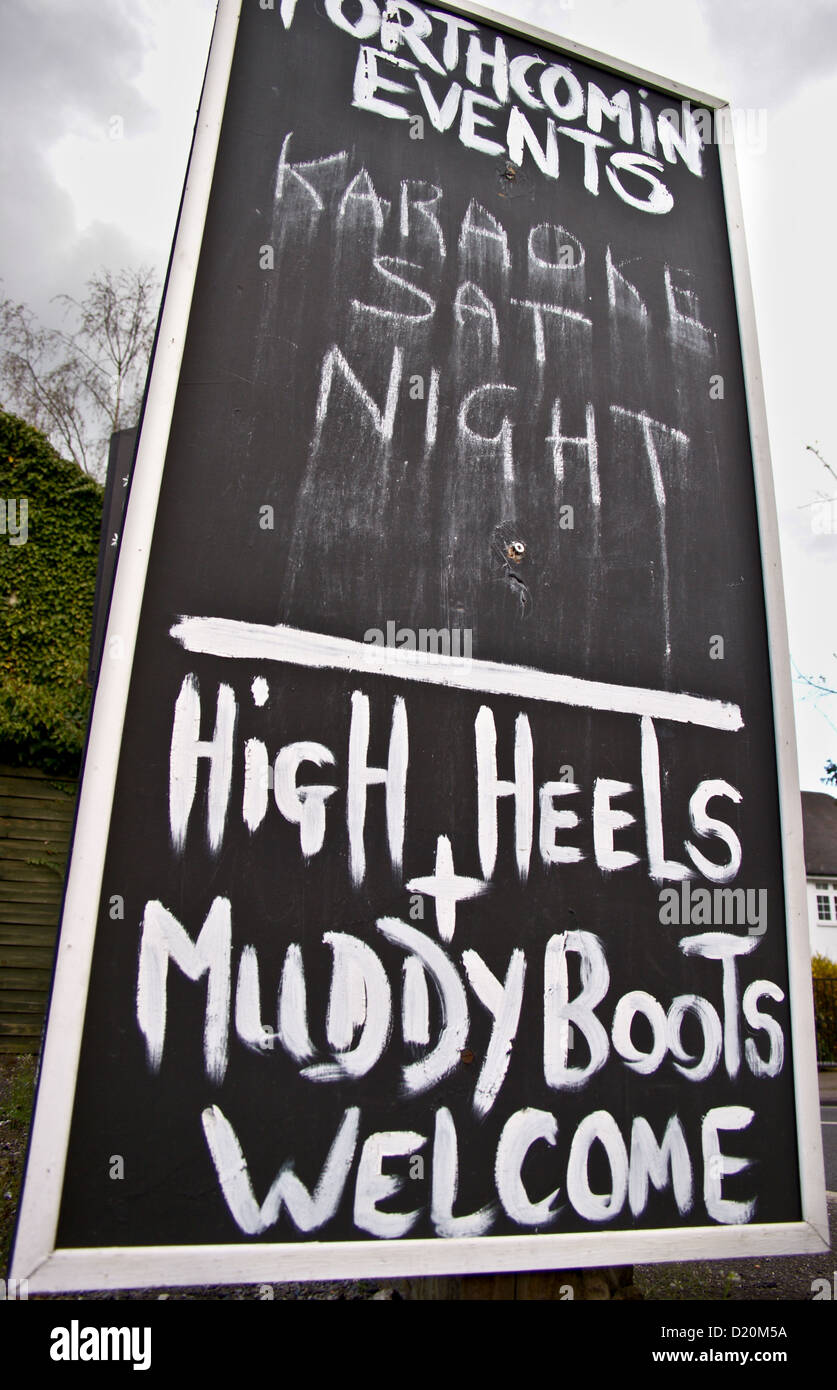 FORTHCOMiN
EVENTS
KARAOKE
SAT
NIGHT
HiGH HEELS
+
MUDDY BOOTS
WELCOME
alamy
Image ID: D20M5A
www.alamy.com